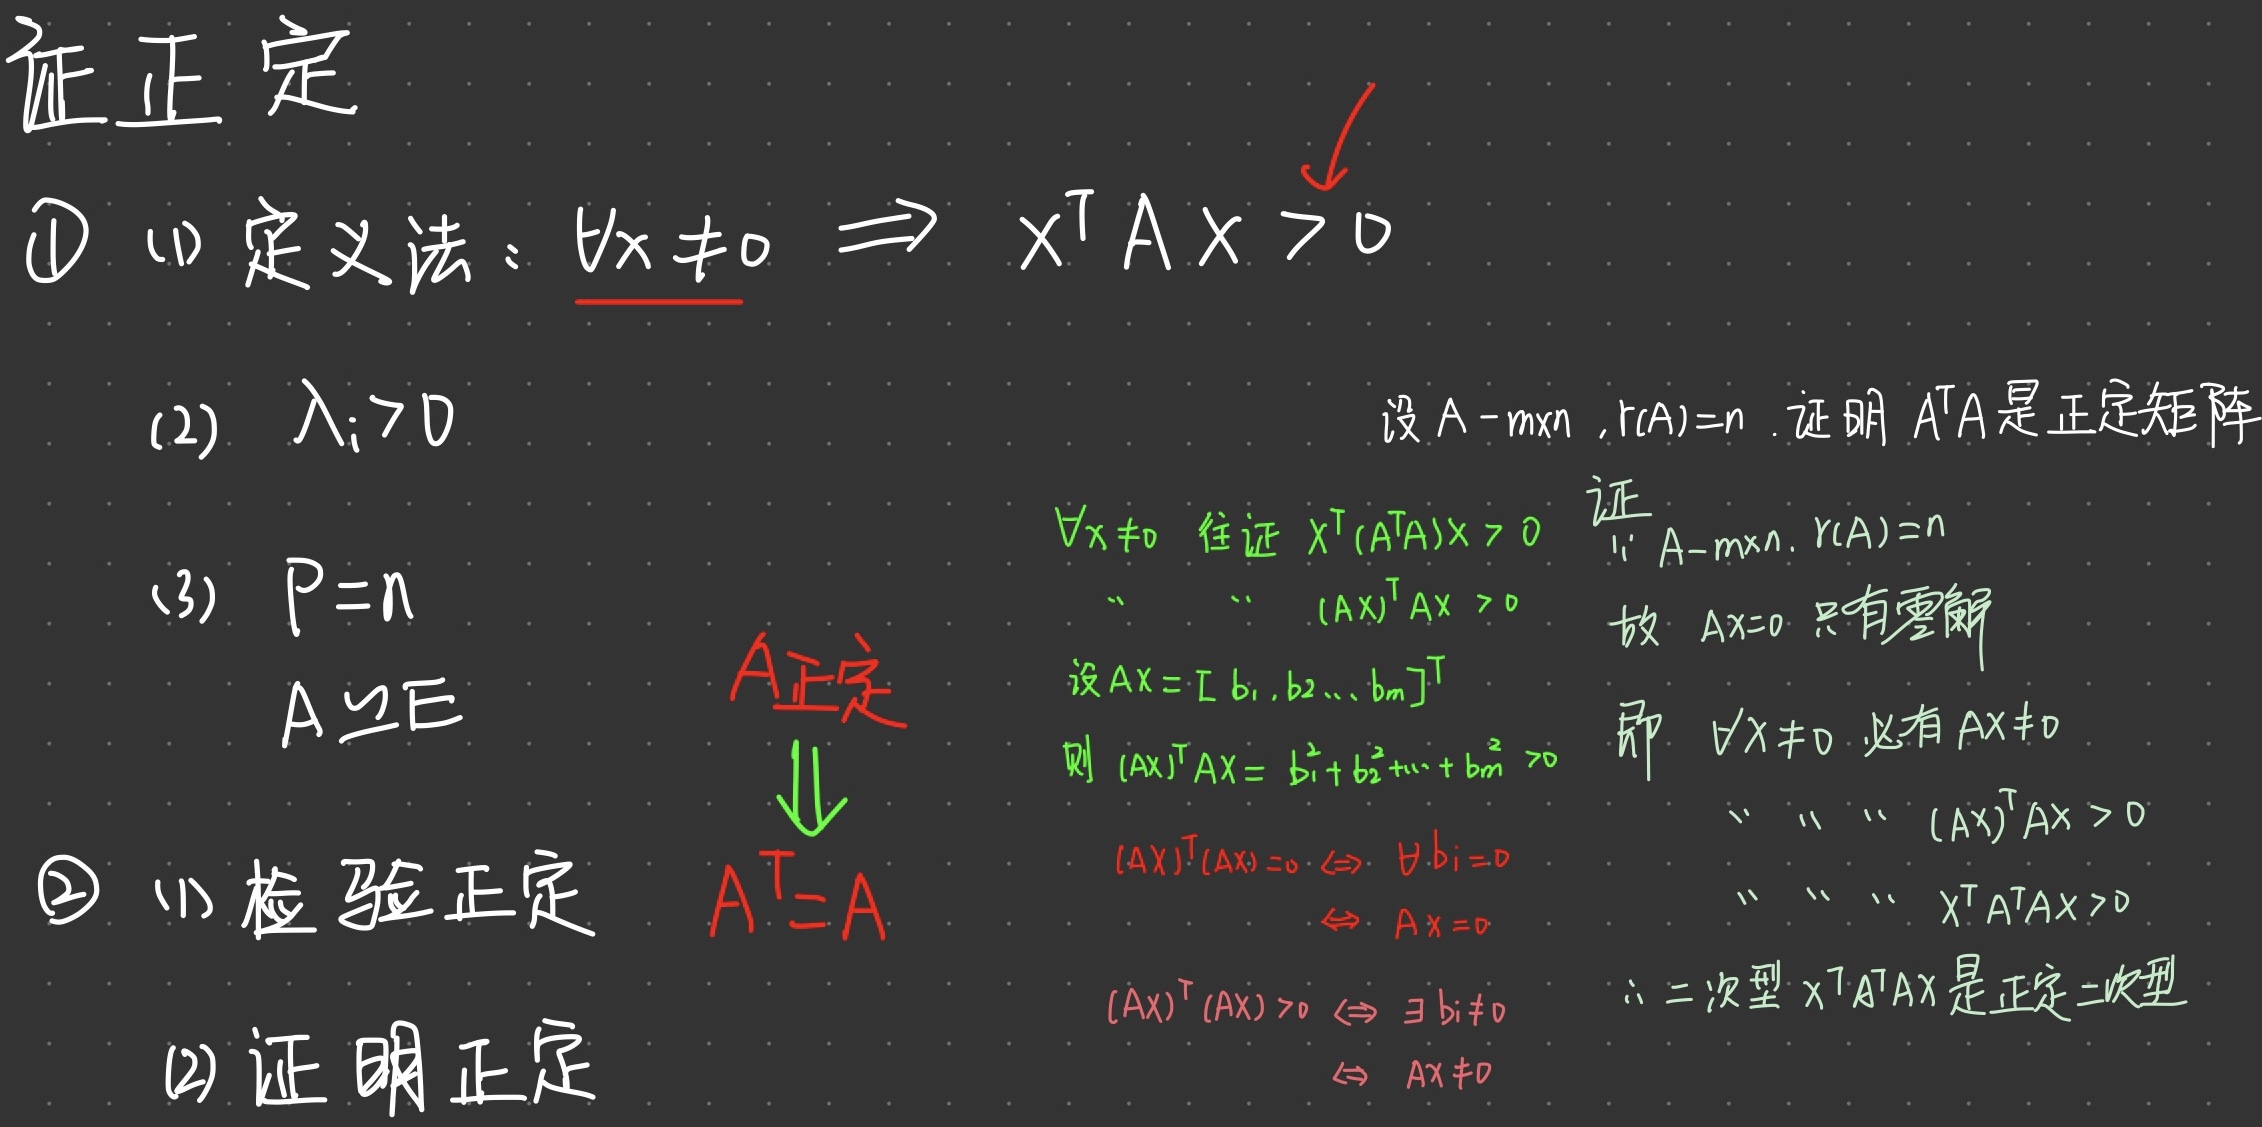 证正定
① (1) 定义法: ∀x≠0 ⇒ xᵀAx>0
(2) λᵢ>0
(3) P=n
A≃E
A正定
⇓
Aᵀ=A
② (1) 检验正定
(2) 证明正定
设 A-m×n, r(A)=n. 证明 AᵀA是正定矩阵
∀x≠0 往证 xᵀ(AᵀA)x>0
〃 〃 (Ax)ᵀAx>0
设 Ax=[b₁,b₂...bₘ]ᵀ
则 (Ax)ᵀAx=b₁²+b₂²+...+bₘ²>0
(Ax)ᵀ(Ax)=0 ⇔ ∀bᵢ=0
⇔ Ax=0
(Ax)ᵀ(Ax)>0 ⇔ ∃bᵢ≠0
⇔ Ax≠0
证
∵ A-m×n. r(A)=n
故 Ax=0 只有零解
即 ∀x≠0 必有 Ax≠0
〃 〃 〃 (Ax)ᵀAx>0
〃 〃 〃 xᵀAᵀAx>0
∴ 二次型 xᵀAᵀAx是正定二次型